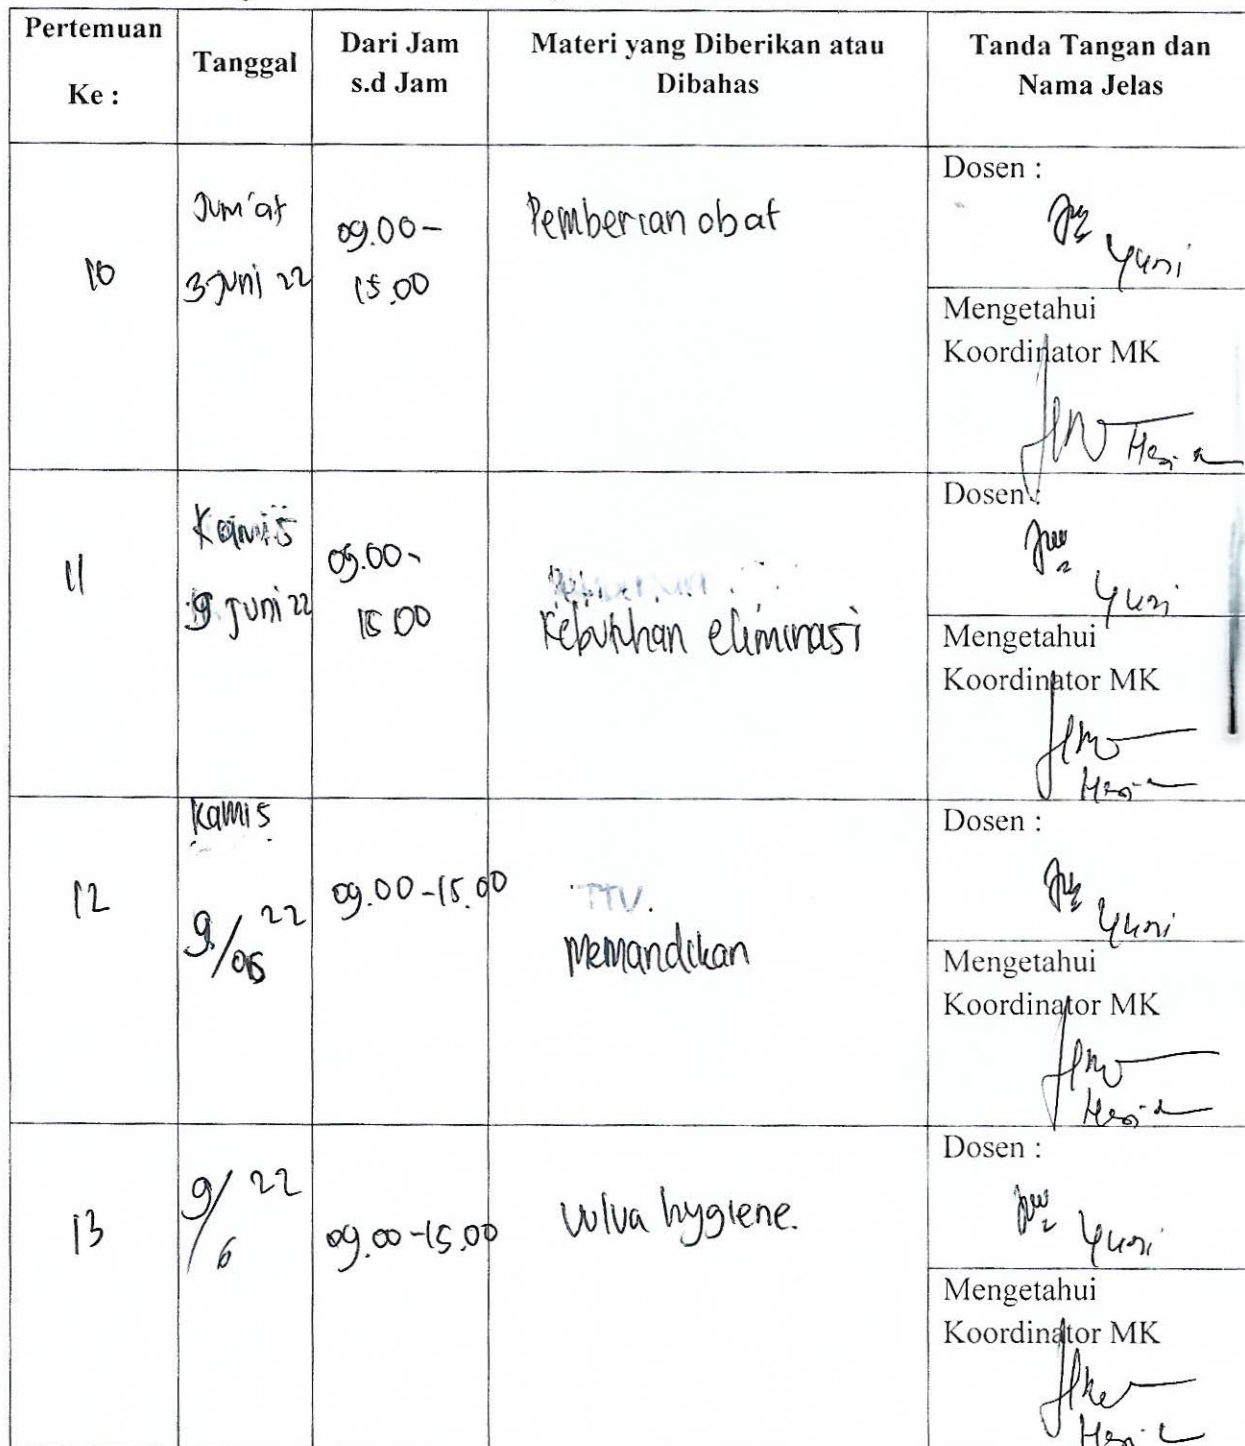 Pertemuan
Ke :
Tanggal
Dari Jam
s.d Jam
Materi yang Diberikan atau
Dibahas
Tanda Tangan dan
Nama Jelas
10
Jum'at
3 Juni 22
09.00 -
15.00
Pemberian obat
Dosen :
Yuni
Mengetahui
Koordinator MK
11
Kamis
9 Juni 22
09.00 -
15 00
Kebutuhan eliminasi
Dosen :
Yuni
Mengetahui
Koordinator MK
12
Kamis
9/06 22
09.00 - 15.00
TTV.
Memandikan
Dosen :
Yuni
Mengetahui
Koordinator MK
13
9/6 22
09.00 - 15.00
Vulva hygiene.
Dosen :
Yuni
Mengetahui
Koordinator MK